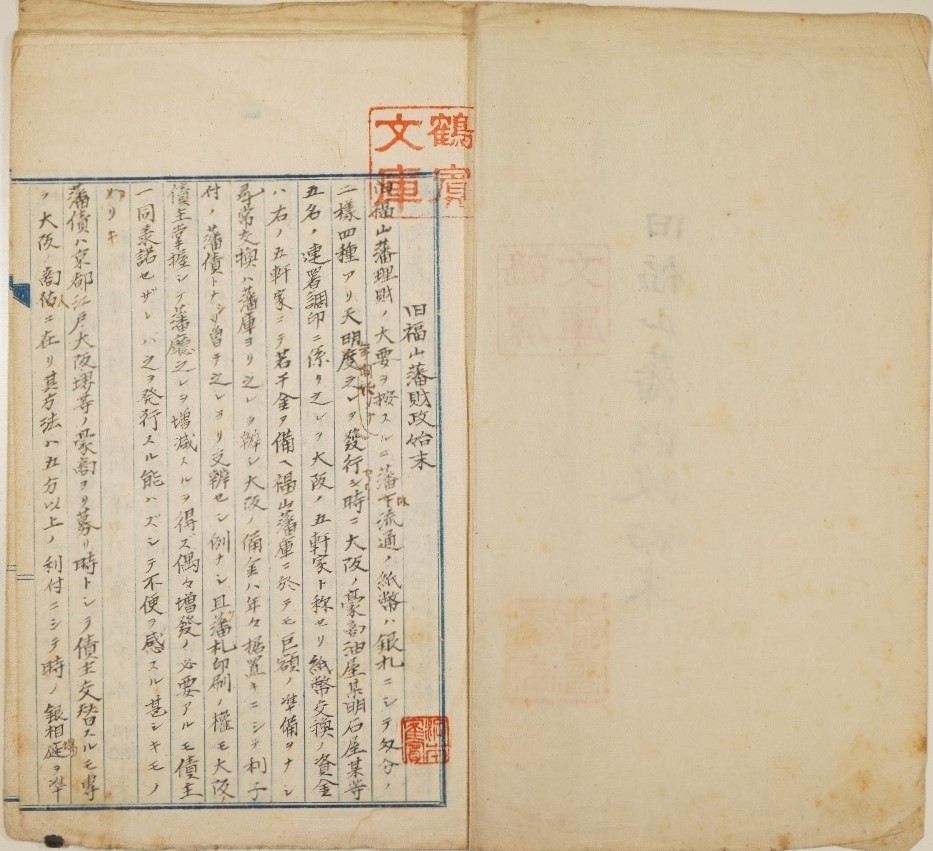 旧福山藩財政始末
旧福山藩理財ノ大要ヲ按スルニ藩下流通ノ紙幣ハ銀札ニシテ匁分ノ
二樣四種アリ天明度之レヲ發行シ時ニ大阪ノ豪商油屋某明石屋某等
五名ノ連署調印ニ係リ之レヲ大阪ノ五軒家ト称セリ紙幣交換ノ資金
ハ右ノ五軒家ニテ若干金ヲ備ヘ福山藩庫ニ於テモ巨額ノ準備ヲナシ
尋常交換ハ藩庫ヨリ之レヲ辨シ大阪ノ備金ハ年々据置キニシテ利子
付ノ藩債トナシ曽テ之レヨリ支辨セシ例ナシ且藩札印刷ノ權モ大阪ノ
債主掌握シテ藩廳之レヲ增減スルヲ得ズ偶々增發ノ必要アルモ債主
一同承諾セザレバ之ヲ発行スル能ハズシテ不便ヲ感スル甚シキモノ
アリキ
藩債ハ京都江戸大阪堺等ノ豪商ヨリ募リ時トシテ債主交替スルモ専
ラ大阪ノ商估ニ在リ其方法ハ五分以上ノ利付ニシテ時ノ銀相場ヲ準
鶴賓
文庫
旧福山藩財政始末